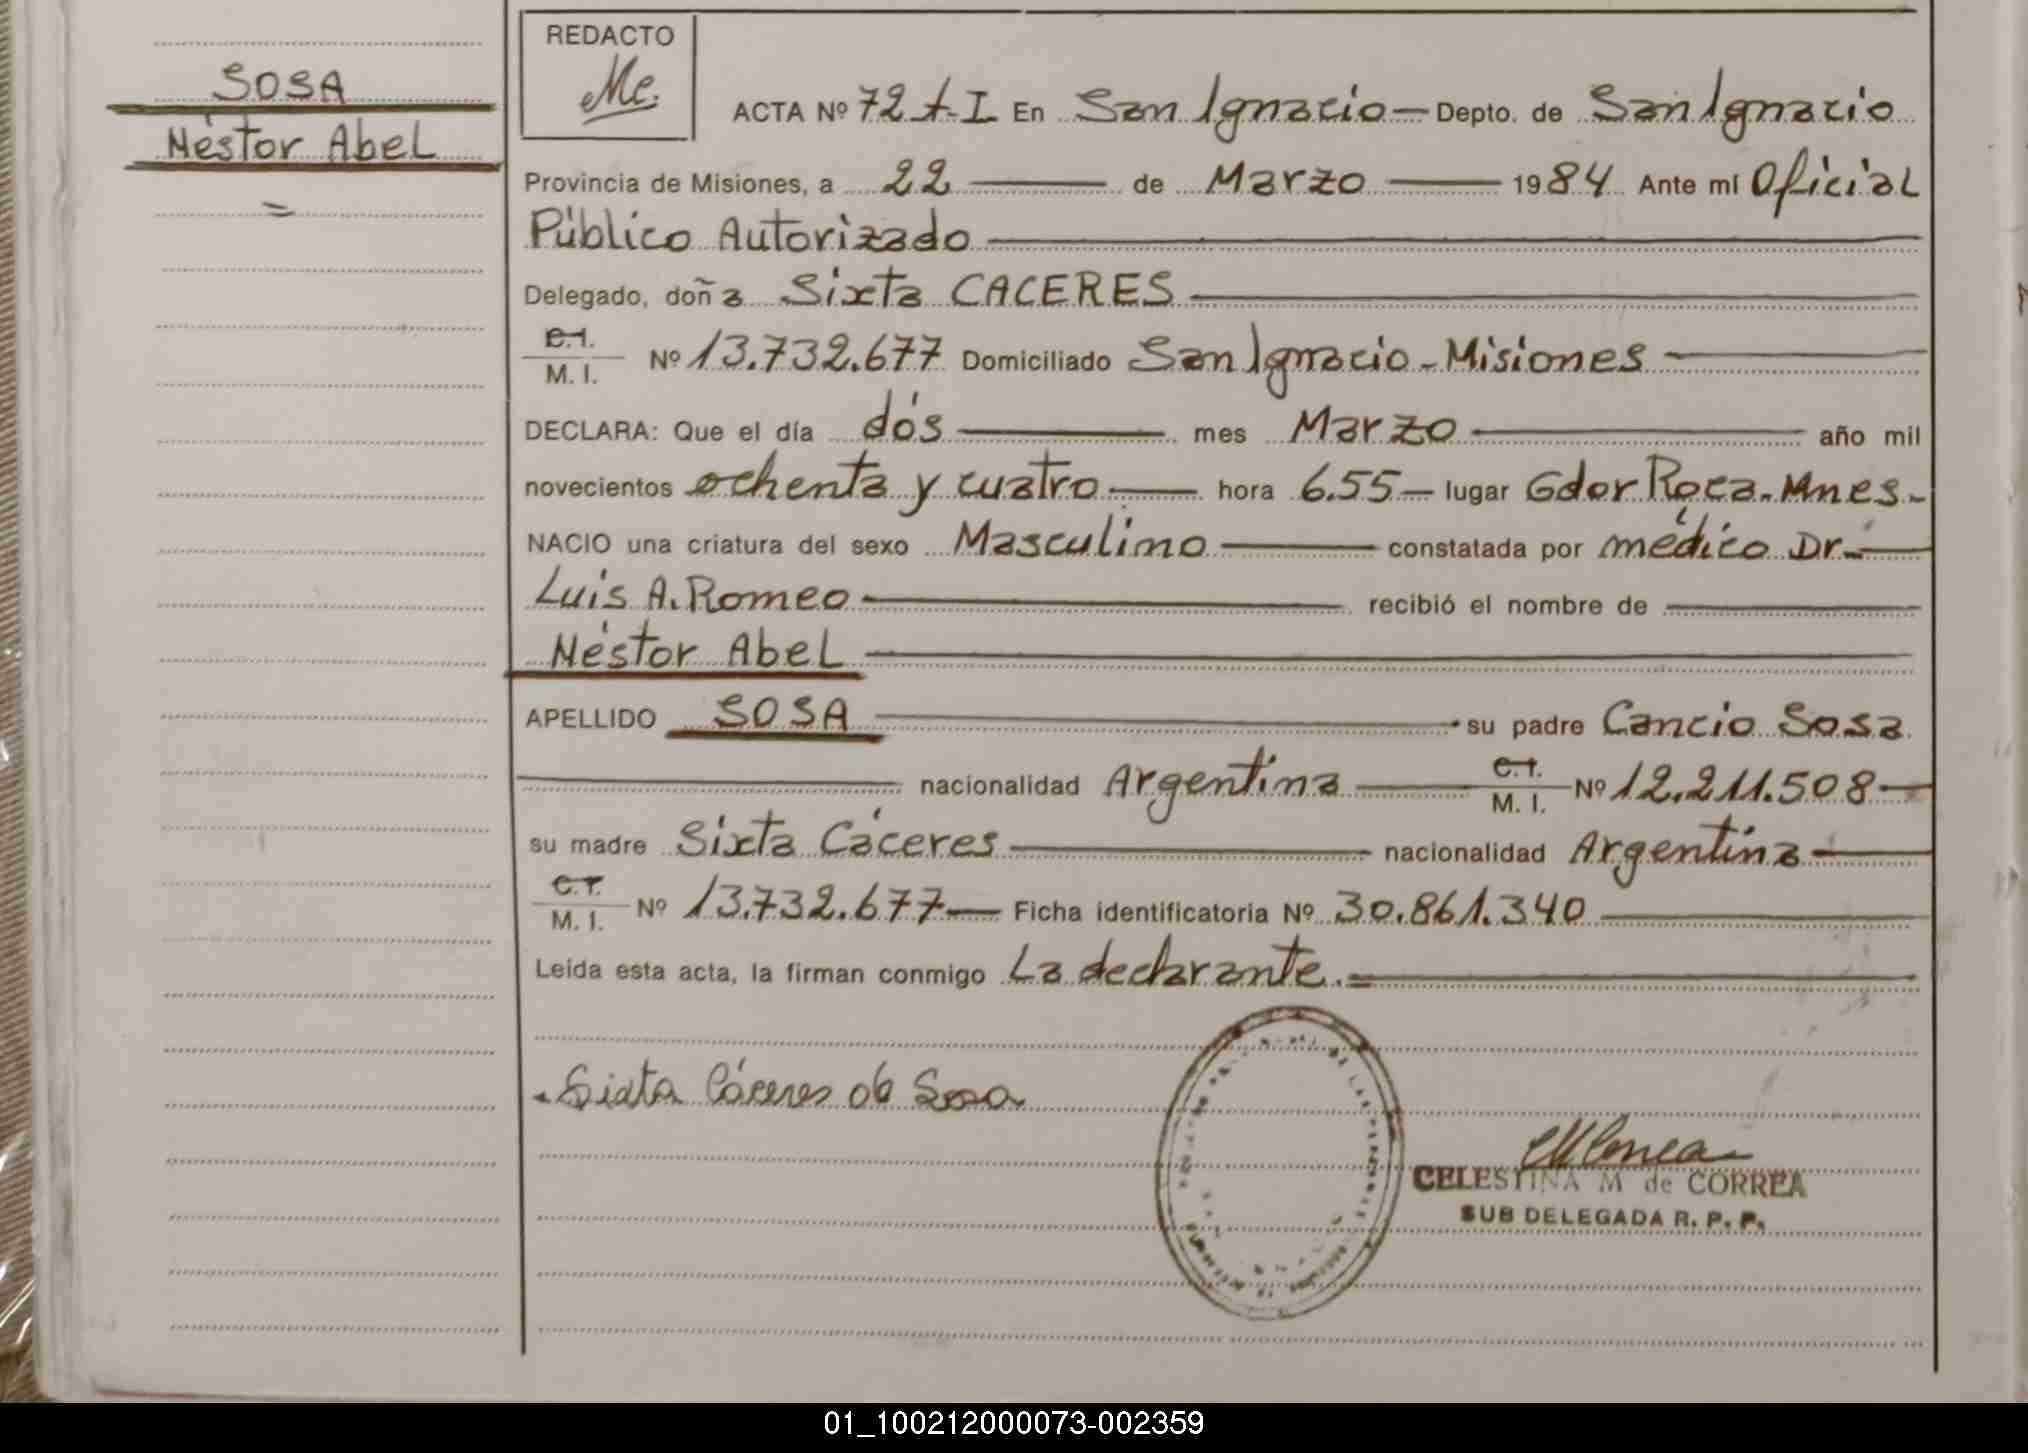 SOSA
Néstor Abel
=
REDACTO
Mc.
ACTA Nº 72 t-I En San Ignacio — Depto. de San Ignacio
Provincia de Misiones, a 22 — de Marzo — 1984 Ante mí Oficial
Público Autorizado —
Delegado, doña Sixta CACERES —
C.I.
M. I. Nº 13.732.677 Domiciliado San Ignacio - Misiones —
DECLARA: Que el día dós — mes Marzo — año mil
novecientos ochenta y cuatro — hora 6.55 — lugar Gdor Roca - Mnes -
NACIO una criatura del sexo Masculino — constatada por médico Dr. —
Luis A. Romeo — recibió el nombre de —
Néstor Abel —
APELLIDO SOSA — su padre Cancio Sosa
— nacionalidad Argentina — C.I.
M. I. Nº 12.211.508 —
su madre Sixta Cáceres — nacionalidad Argentina —
C.I.
M. I. Nº 13.732.677 — Ficha identificatoria Nº 30.861.340 —
Leída esta acta, la firman conmigo La declarante. =
Sixta Cáceres de Sosa
CELESTINA M de CORREA
SUB DELEGADA R. P. P.
01_100212000073-002359